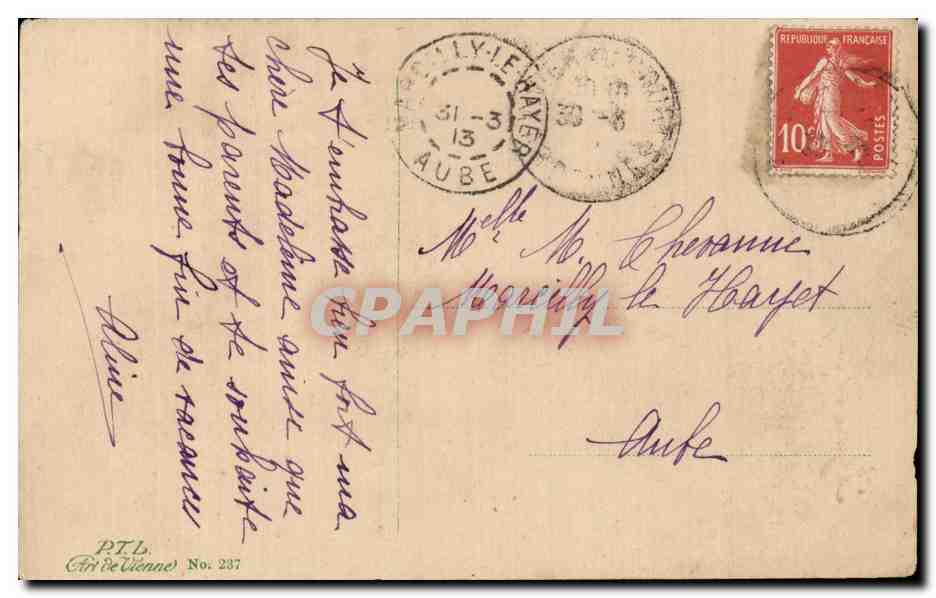 Je t'embrasse bien fort ma
chère Madeleine ainsi que
tes parents et te souhaite
une bonne fin de vacances
Aline
MARCILLY-LE-HAYER
31 -3
13
AUBE
30 -3
REPUBLIQUE FRANÇAISE
10c
POSTES
Melle M. Chevanne
Marcilly le Hayet
Aube
CPAPHIL
P.T.L.
(Art de Vienne) No. 237